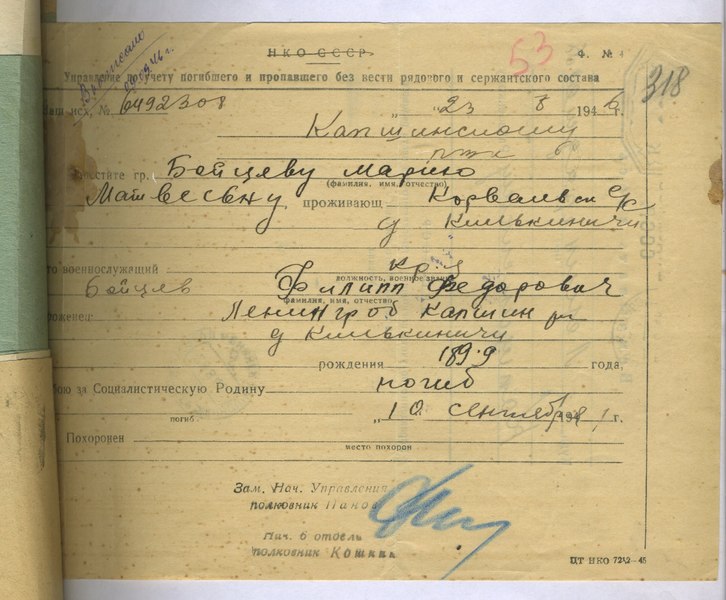 Выписано
53
318
НКО СССР
Ф. № 4
Управление по учету погибшего и пропавшего без вести рядового и сержантского состава
Ваш исх. № 6492308 „23 8 1946 г.
Капшинскому
рвк
Бойцеву Марию
(фамилия, имя, отчество)
Матвеевну проживающ Корвальск с/с
д Килькиничи
военнослужащий кр-ц
должность, военное звание
Бойцев Филипп Федорович
(фамилия, имя, отчество)
Ленингроб Капшин рн
д Килькиничи
рождения 1899 года,
бою за Социалистическую Родину погиб
погиб „10 сентября 1941 г.
Похоронен
место похорон
Зам. Нач. Управления
полковник Панов
Нач. 6 отдела
полковник Кошкин
ЦТ НКО 7212-45